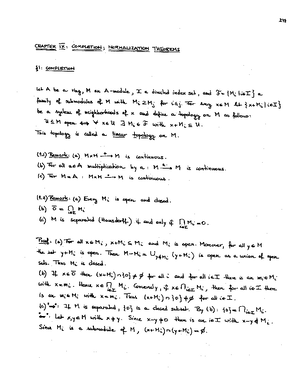 219
CHAPTER IX: COMPLETION, NORMALIZATION THEOREMS
§1: COMPLETION
Let A be a ring, M an A-module, I a directed index set, and F = {M_i | i∈I} a
family of submodules of M with M_i ⊇ M_j for i≤j. For every x∈M let {x+M_i | i∈I}
be a system of neighborhoods of x and define a topology on M as follows:
U ⊆ M open ⟺ ∀ x∈U ∃ M_i∈F with x+M_i ⊆ U.
This topology is called a linear topology on M.
(9.1) Remark: (a) M×M → M is continuous.
(b) For all a∈A multiplication by a: M → M is continuous.
(c) For M=A: M×M → M is continuous.
(9.2) Remark: (a) Every M_i is open and closed.
(b) 0̄ = ⋂ M_i
i∈I
(c) M is separated (Hausdorff) if and only if ⋂ M_i = 0.
i∈I
Proof: (a) For all x∈M_i, x+M_i ⊆ M_i and M_i is open. Moreover, for all y∈M
the set y+M_i is open. Then M−M_i = ⋃ (y+M_i) is open as a union of open
sets. Thus M_i is closed.
(b) If x∈0̄ then (x+M_i)∩{0} ≠ ∅ for all i and for all i∈I there is an m_i∈M_i
with x=m_i. Hence x∈⋂ M_i. Conversely, if x∈⋂ M_i, then for all i∈I there
is an m_i∈M_i with x=m_i. Thus (x+M_i)∩{0} ≠ ∅ for all i∈I.
(c) "⟹": If M is separated, {0} is a closed subset. By (b): {0} = ⋂ M_i.
"⟸": Let x,y∈M with x≠y. Since x−y≠0 there is an i∈I with x−y∉M_i.
Since M_i is a submodule of M, (x+M_i)∩(y+M_i) = ∅.